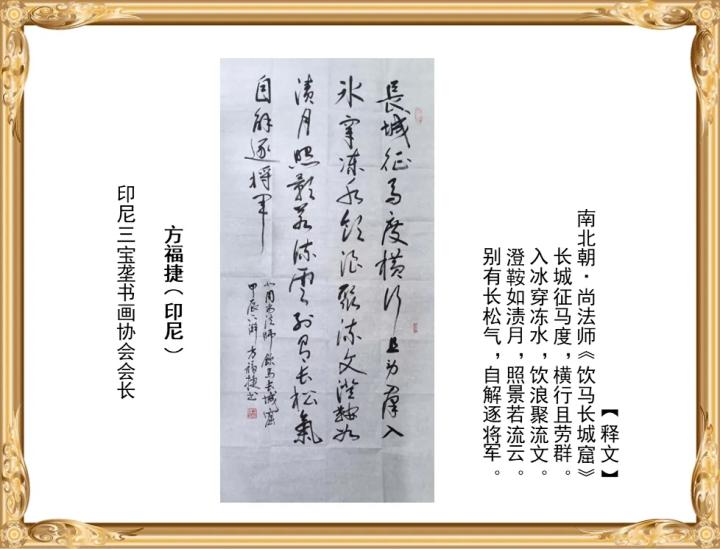 【释文】
南北朝·尚法师《饮马长城窟》
长城征马度，横行且劳群。
入冰穿冻水，饮浪聚流文。
澄鞍如渍月，照景若流云。
别有长松气，自解逐将军。
長城征马度横行且劳羣入
冰穿冻水饮浪聚流文澄鞍如
渍月照影若流雲别有长松氣
自解逐将軍
北周尚法师饮马长城窟
甲辰 方福捷书
方福捷（印尼）
印尼三宝垄书画协会会长